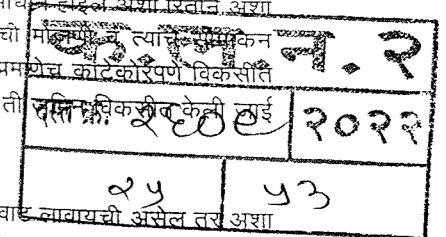 अशा रितीने अशा
ची मोजणी व त्याचे सीमांकन
प्रमाणेच काटेकोरपणे विकसीत
ती जमिन विकसीत केली जाई
क.ल.न. २
दस्त क्र. २६०९ २०२२
२५ ५३
वाड लावायची असेल तर अशा